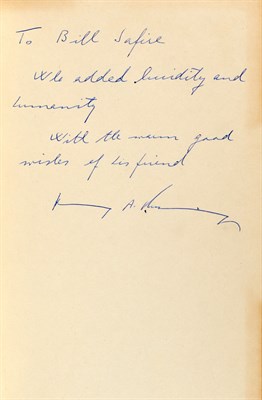 To Bill Safire
Who added lucidity and
humanity
With the warm good
wishes of his friend
A.